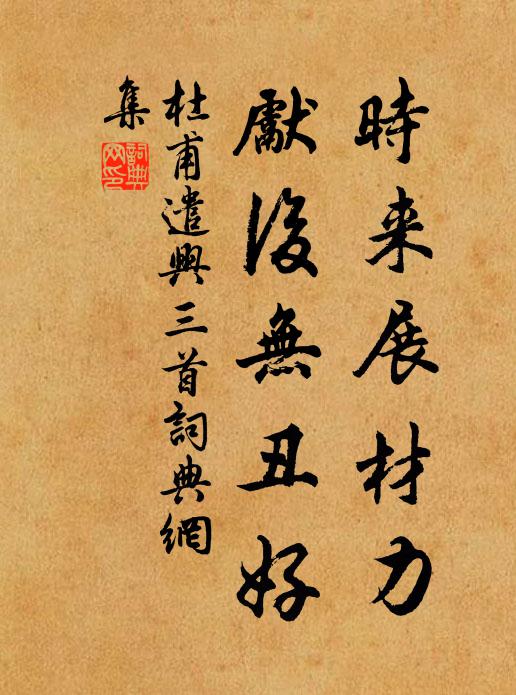 時来展材力
獻後無丑好
杜甫遣興三首詞典網
集
詞典网印